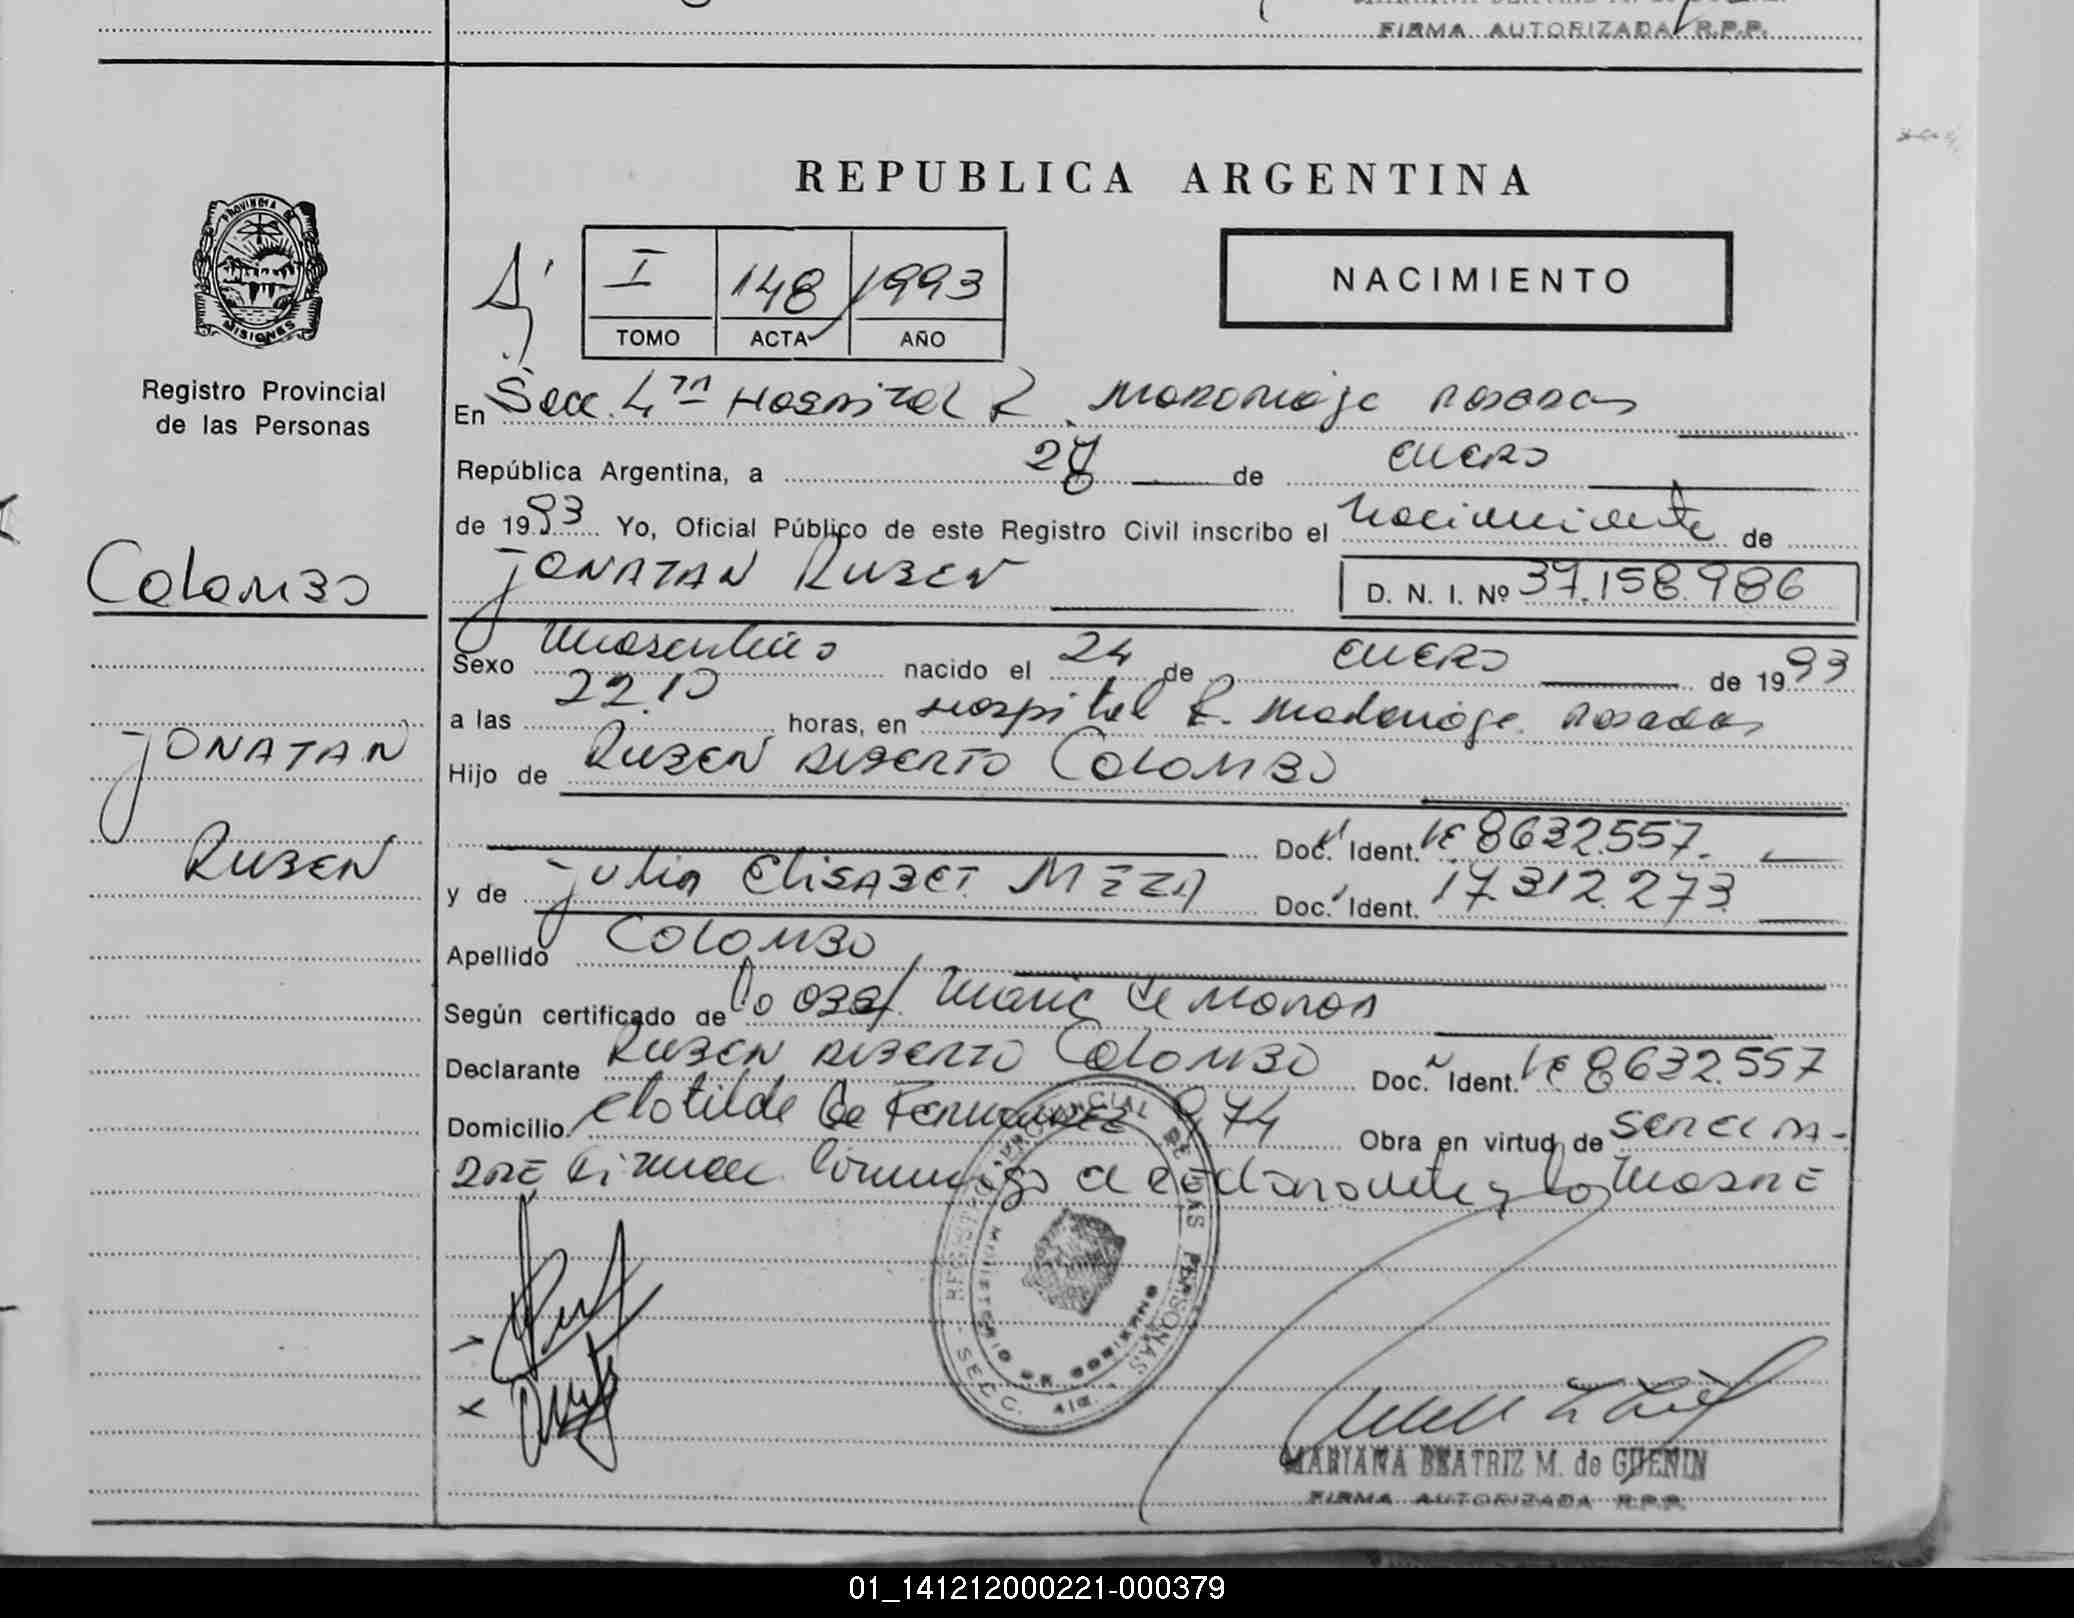 FIRMA AUTORIZADA R.P.P.
REPUBLICA ARGENTINA
PROVINCIA DE
MISIONES
Registro Provincial
de las Personas
I 148 1993
TOMO ACTA AÑO
NACIMIENTO
En Secc. 4ta Hospital R. Madariaga Posadas
República Argentina, a 28 de enero
de 1993 Yo, Oficial Público de este Registro Civil inscribo el nacimiento de
JONATAN RUBEN D. N. I. Nº 37.158.986
Colombo
JONATAN
RUBEN
Sexo masculino nacido el 24 de enero de 1993
a las 22.10 horas, en Hospital R. Madariaga Posadas
Hijo de RUBEN ALBERTO COLOMBO
Doc. Ident. LE 8632.557.
y de Julia ELISABET MEZA Doc. Ident. 17.312.273
Apellido COLOMBO
Según certificado de la obst. María de
Declarante RUBEN ALBERTO COLOMBO Doc. Ident. LE 8632.557
Domicilio Clotilde de Fernandez 974 Obra en virtud de ser el pa-
dre Firman conmigo el declarante y la madre
REGISTRO PROVINCIAL DE LAS PERSONAS
MINISTERIO DE GOBIERNO
SECC. 4ta.
MARIANA BEATRIZ M. de GUENIN
FIRMA AUTORIZADA R.P.P.
01_141212000221-000379